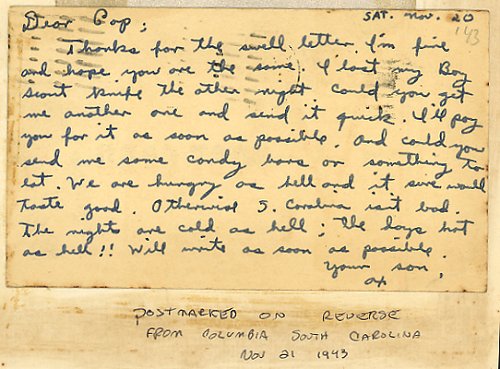 SAT. Nov. 20
'43
Dear Pop;
Thanks for the swell letter. I'm fine
and hope you are the same. I lost my Boy
Scout knife the other night could you get
me another one and send it quick. I'll pay
you for it as soon as possible. And could you
send me some candy bars or something to
eat. We are hungry as hell and it sure would
taste good. Otherwise S. Carolina isn't bad.
The nights are cold as hell; the days hot
as hell!! Will write as soon as possible.
Your son,
POSTMARKED ON REVERSE
FROM COLUMBIA SOUTH CAROLINA
NOV 21 1943